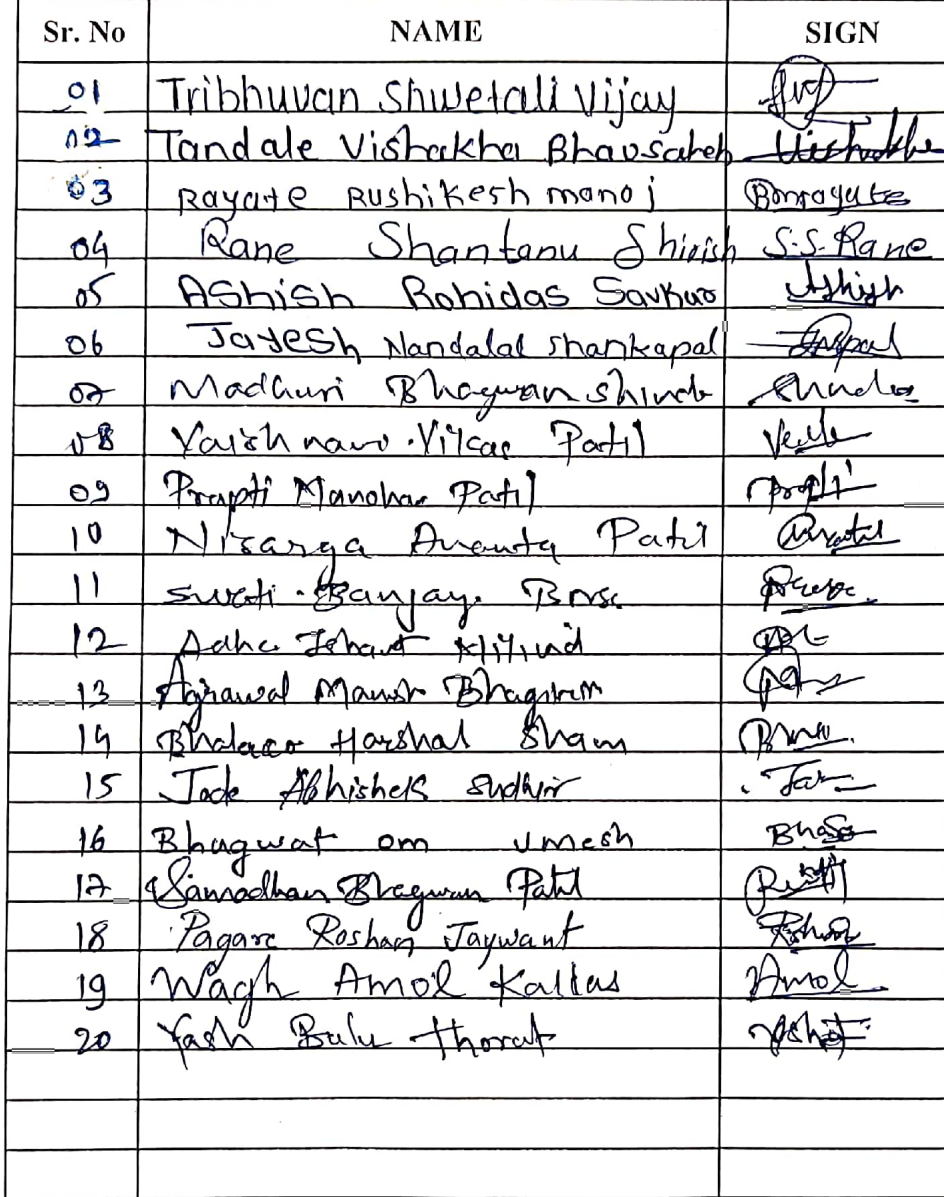 Sr. No NAME SIGN
01 Tribhuvan Shwetali Vijay
02 Tandale Vishakha Bhausaheb Vishakha
03 Rayate Rushikesh manoj
04 Rane Shantanu Shirish S.S. Rane
05 Ashish Rohidas Ashish
06 Jayesh Nandalal Shankapal
07 Madhuri Bhagwan Shinde Shinde
08 Patil
09 Prapti Manohar Patil Prapti
10 Nisarga Ananta Patil
11 swati. Sanjay.
12
13 Agrawal Manish
14 Harshal Sham
15 Abhishek Sudhir
16 Bhagwat om Umesh
17 Samadhan Bhagwan Patil
18 Pagare Roshan Jaywant
19 Wagh Amol Kailas Amol
20 Yash Balu Thorat